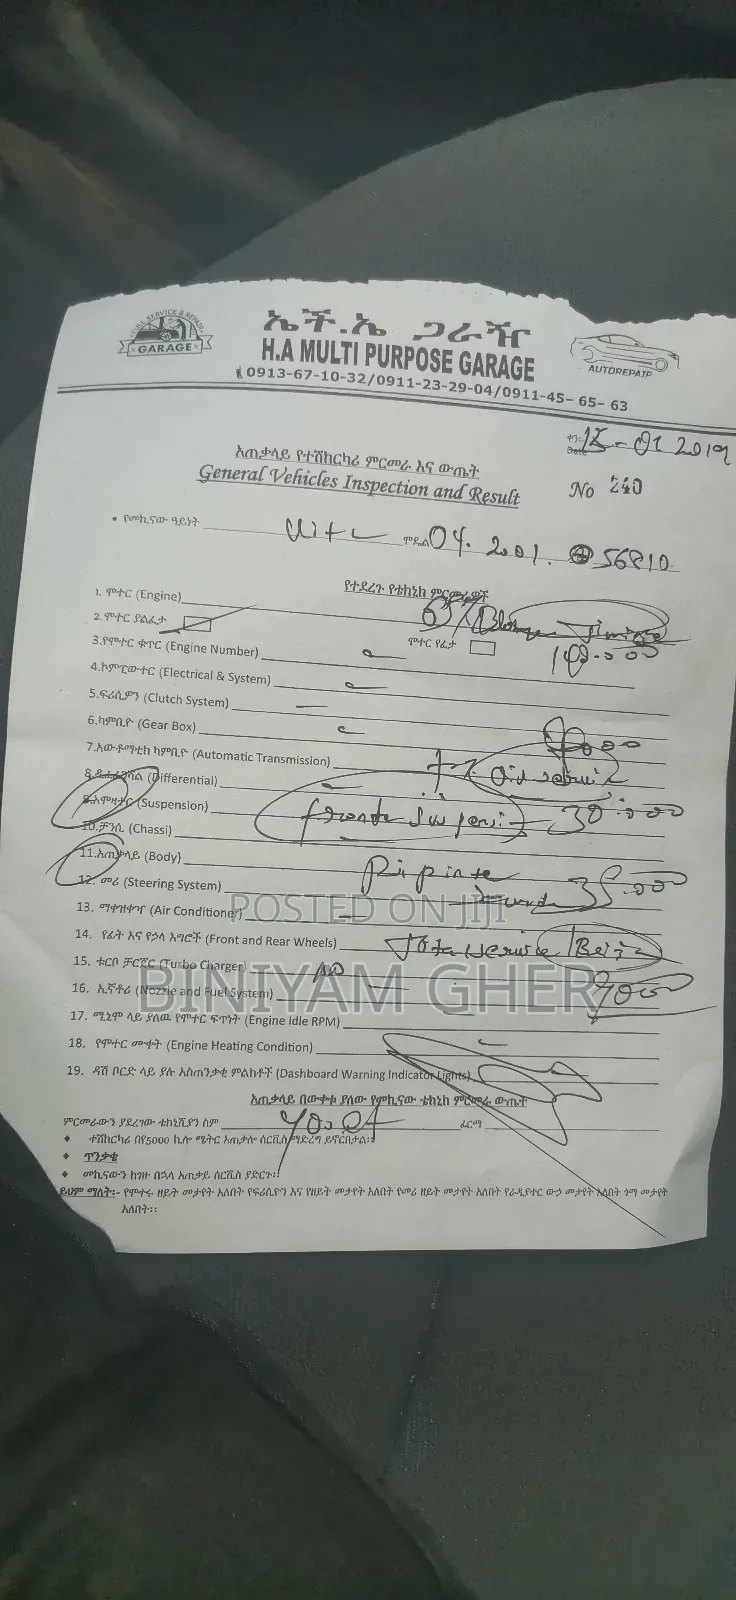 FULL SERVICE & REPAIR
GARAGE
ኤች.ኤ ጋራዥ
H.A MULTI PURPOSE GARAGE
0913-67-10-32/0911-23-29-04/0911-45-65-63
AUTOREPAIR
ቀን:
Date - 01 2019
አጠቃላይ የተሽከርካሪ ምርመራ እና ውጤት
General Vehicles Inspection and Result
No 240
• የመኪናው ዓይነት Vitz ሞዴል 04. 2001. 56810.
የተደረጉ የቴክኒክ ምርመራዎች
1. ሞተር (Engine) 65%
2. ሞተር ያልፈታ ሞተር የፈታ
3.የሞተር ቁጥር (Engine Number)
4.ኮምፒውተር (Electrical & System)
5.ፍሪሲዎን (Clutch System)
6.ካምቢዮ (Gear Box)
7.አውቶማቲክ ካምቢዮ (Automatic Transmission)
8.ዲፈረንሻል (Differential)
9.አሞዛተር (Suspension)
10.ቻንሲ (Chassi)
11.አጠቃላይ (Body)
12. መሪ (Steering System)
13. ማቀዝቀዣ (Air Conditioner)
14. የፊት እና የኃላ እግሮች (Front and Rear Wheels)
15. ቱርቦ ቻርጀር (Turbo Charger) NO
16. ኢኛቶሪ (Nozzle and Fuel System)
17. ሚኒሞ ላይ ያለዉ የሞተር ፍጥነት (Engine Idle RPM)
18. የሞተር ሙቀት (Engine Heating Condition)
19. ዳሽ ቦርድ ላይ ያሉ አስጠንቃቂ ምልክቶች (Dashboard Warning Indicator Lights)
አጠቃላይ በወቅቱ ያለው የመኪናው ቴክኒክ ምርመራ ውጤት
ምርመራውን ያደረገው ቴክኒሺያን ስም ፊርማ
♦ ተሽከርካሪ በየ5000 ኪሎ ሜትር አጠቃሎ ሰርቪስ ማድረግ ይኖርበታል፡፡
♦ ጥንቃቄ
♦ መኪናውን ከገዙ በኋላ አጠቃይ ሰርቪስ ያድርጉ፡፡
ይህም ማለት፡- የሞተሩ ዘይት መታየት አለበት የፍሪሲዮን እና የዘይት መታየት አለበት የመሪ ዘይት መታየት አለበት የራዲያተር ውኃ መታየት አለበት ጎማ መታየት
አለበት፡፡
POSTED ON JIJI
BINIYAM GHER